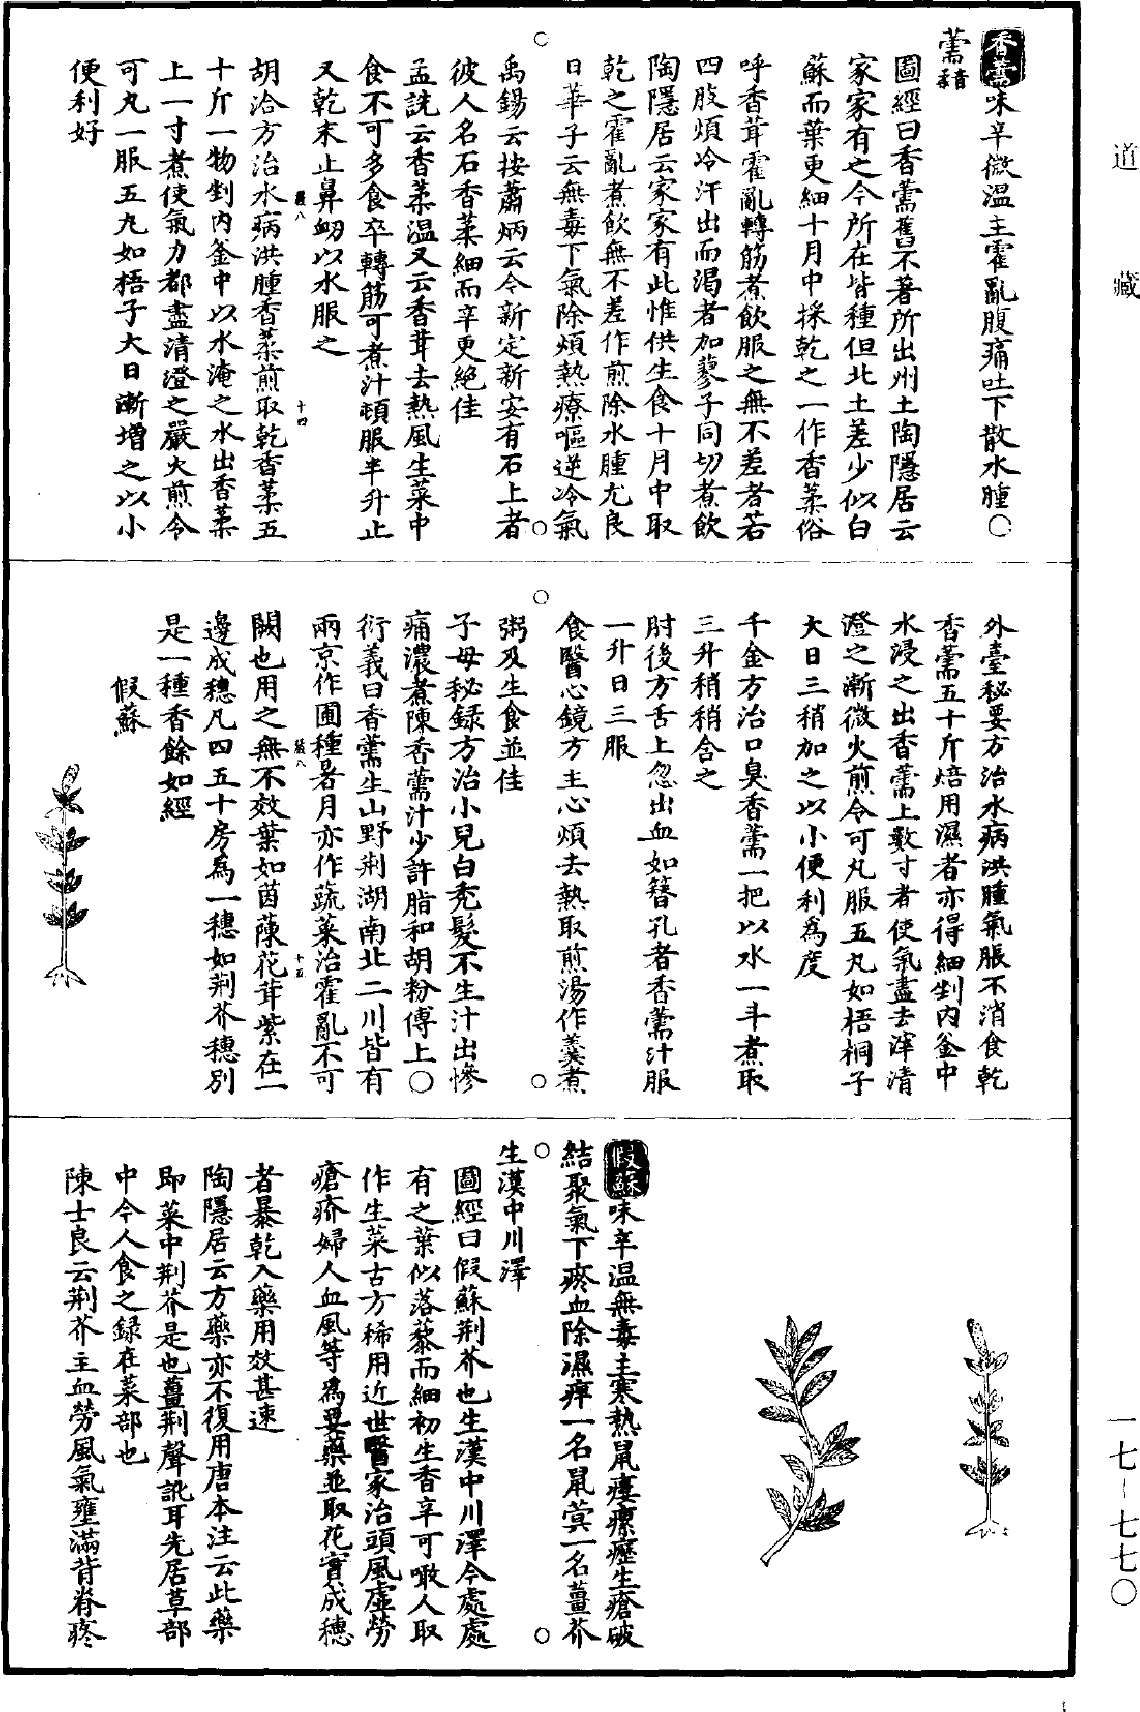 香薷味辛微温主霍亂腹痛吐下散水腫○
薷音柔
圖經曰香薷舊不著所出州土陶隱居云
家家有之今所在皆種但北土差少似白
蘇而葉更細十月中採乾之一作香葇俗
呼香茸霍亂轉筋煮飲服之無不差者若
四肢煩冷汗出而渴者加蓼子同切煮飲
陶隱居云家家有此惟供生食十月中取
乾之霍亂煮飲無不差作煎除水腫尤良
日華子云無毒下氣除煩熱療嘔逆冷氣
禹錫云按蕭炳云今新定新安有石上者
彼人名石香葇細而辛更絶佳
孟詵云香葇温又云香茸去熱風生菜中
食不可多食卒轉筋可煮汁頓服半升止
又乾末止鼻衄以水服之
胡洽方治水病洪腫香葇煎取乾香葇五
十斤一物剉内釜中以水淹之水出香葇
上一寸煮使氣力都盡清澄之嚴火煎令
可丸一服五丸如梧子大日漸增之以小
便利好
外臺秘要方治水病洪腫氣脹不消食乾
香薷五十斤焙用濕者亦得細剉内釜中
水浸之出香薷上數寸者使氣盡去滓清
澄之漸微火煎令可丸服五丸如梧桐子
大日三稍加之以小便利爲度
千金方治口臭香薷一把以水一斗煮取
三升稍稍含之
肘後方舌上忽出血如簪孔者香薷汁服
一升日三服
食醫心鏡方主心煩去熱取煎湯作羹煮
粥及生食並佳
子母秘録方治小兒白禿髮不生汁出慘
痛濃煮陳香薷汁少許脂和胡粉傅上○
衍義曰香薷生山野荆湖南北二川皆有
兩京作圃種暑月亦作蔬菜治霍亂不可
闕也用之無不效葉如茵蔯花茸紫在一
邊成穗凡四五十房爲一穗如荆芥穗别
是一種香餘如經
假蘇
假蘇味辛温無毒主寒熱鼠瘻瘰癧生瘡破
結聚氣下瘀血除濕痺一名鼠蓂一名薑芥
生漢中川澤
圖經曰假蘇荆芥也生漢中川澤今處處
有之葉似落藜而細初生香辛可噉人取
作生菜古方稀用近世醫家治頭風虛勞
瘡疥婦人血風等爲要藥並取花實成穗
者暴乾入藥用效甚速
陶隱居云方藥亦不復用唐本注云此藥
即菜中荆芥是也薑荆聲訛耳先居草部
中今人食之録在菜部也
陳士良云荆芥主血勞風氣壅滿背脊疼
道藏
一七－七七〇